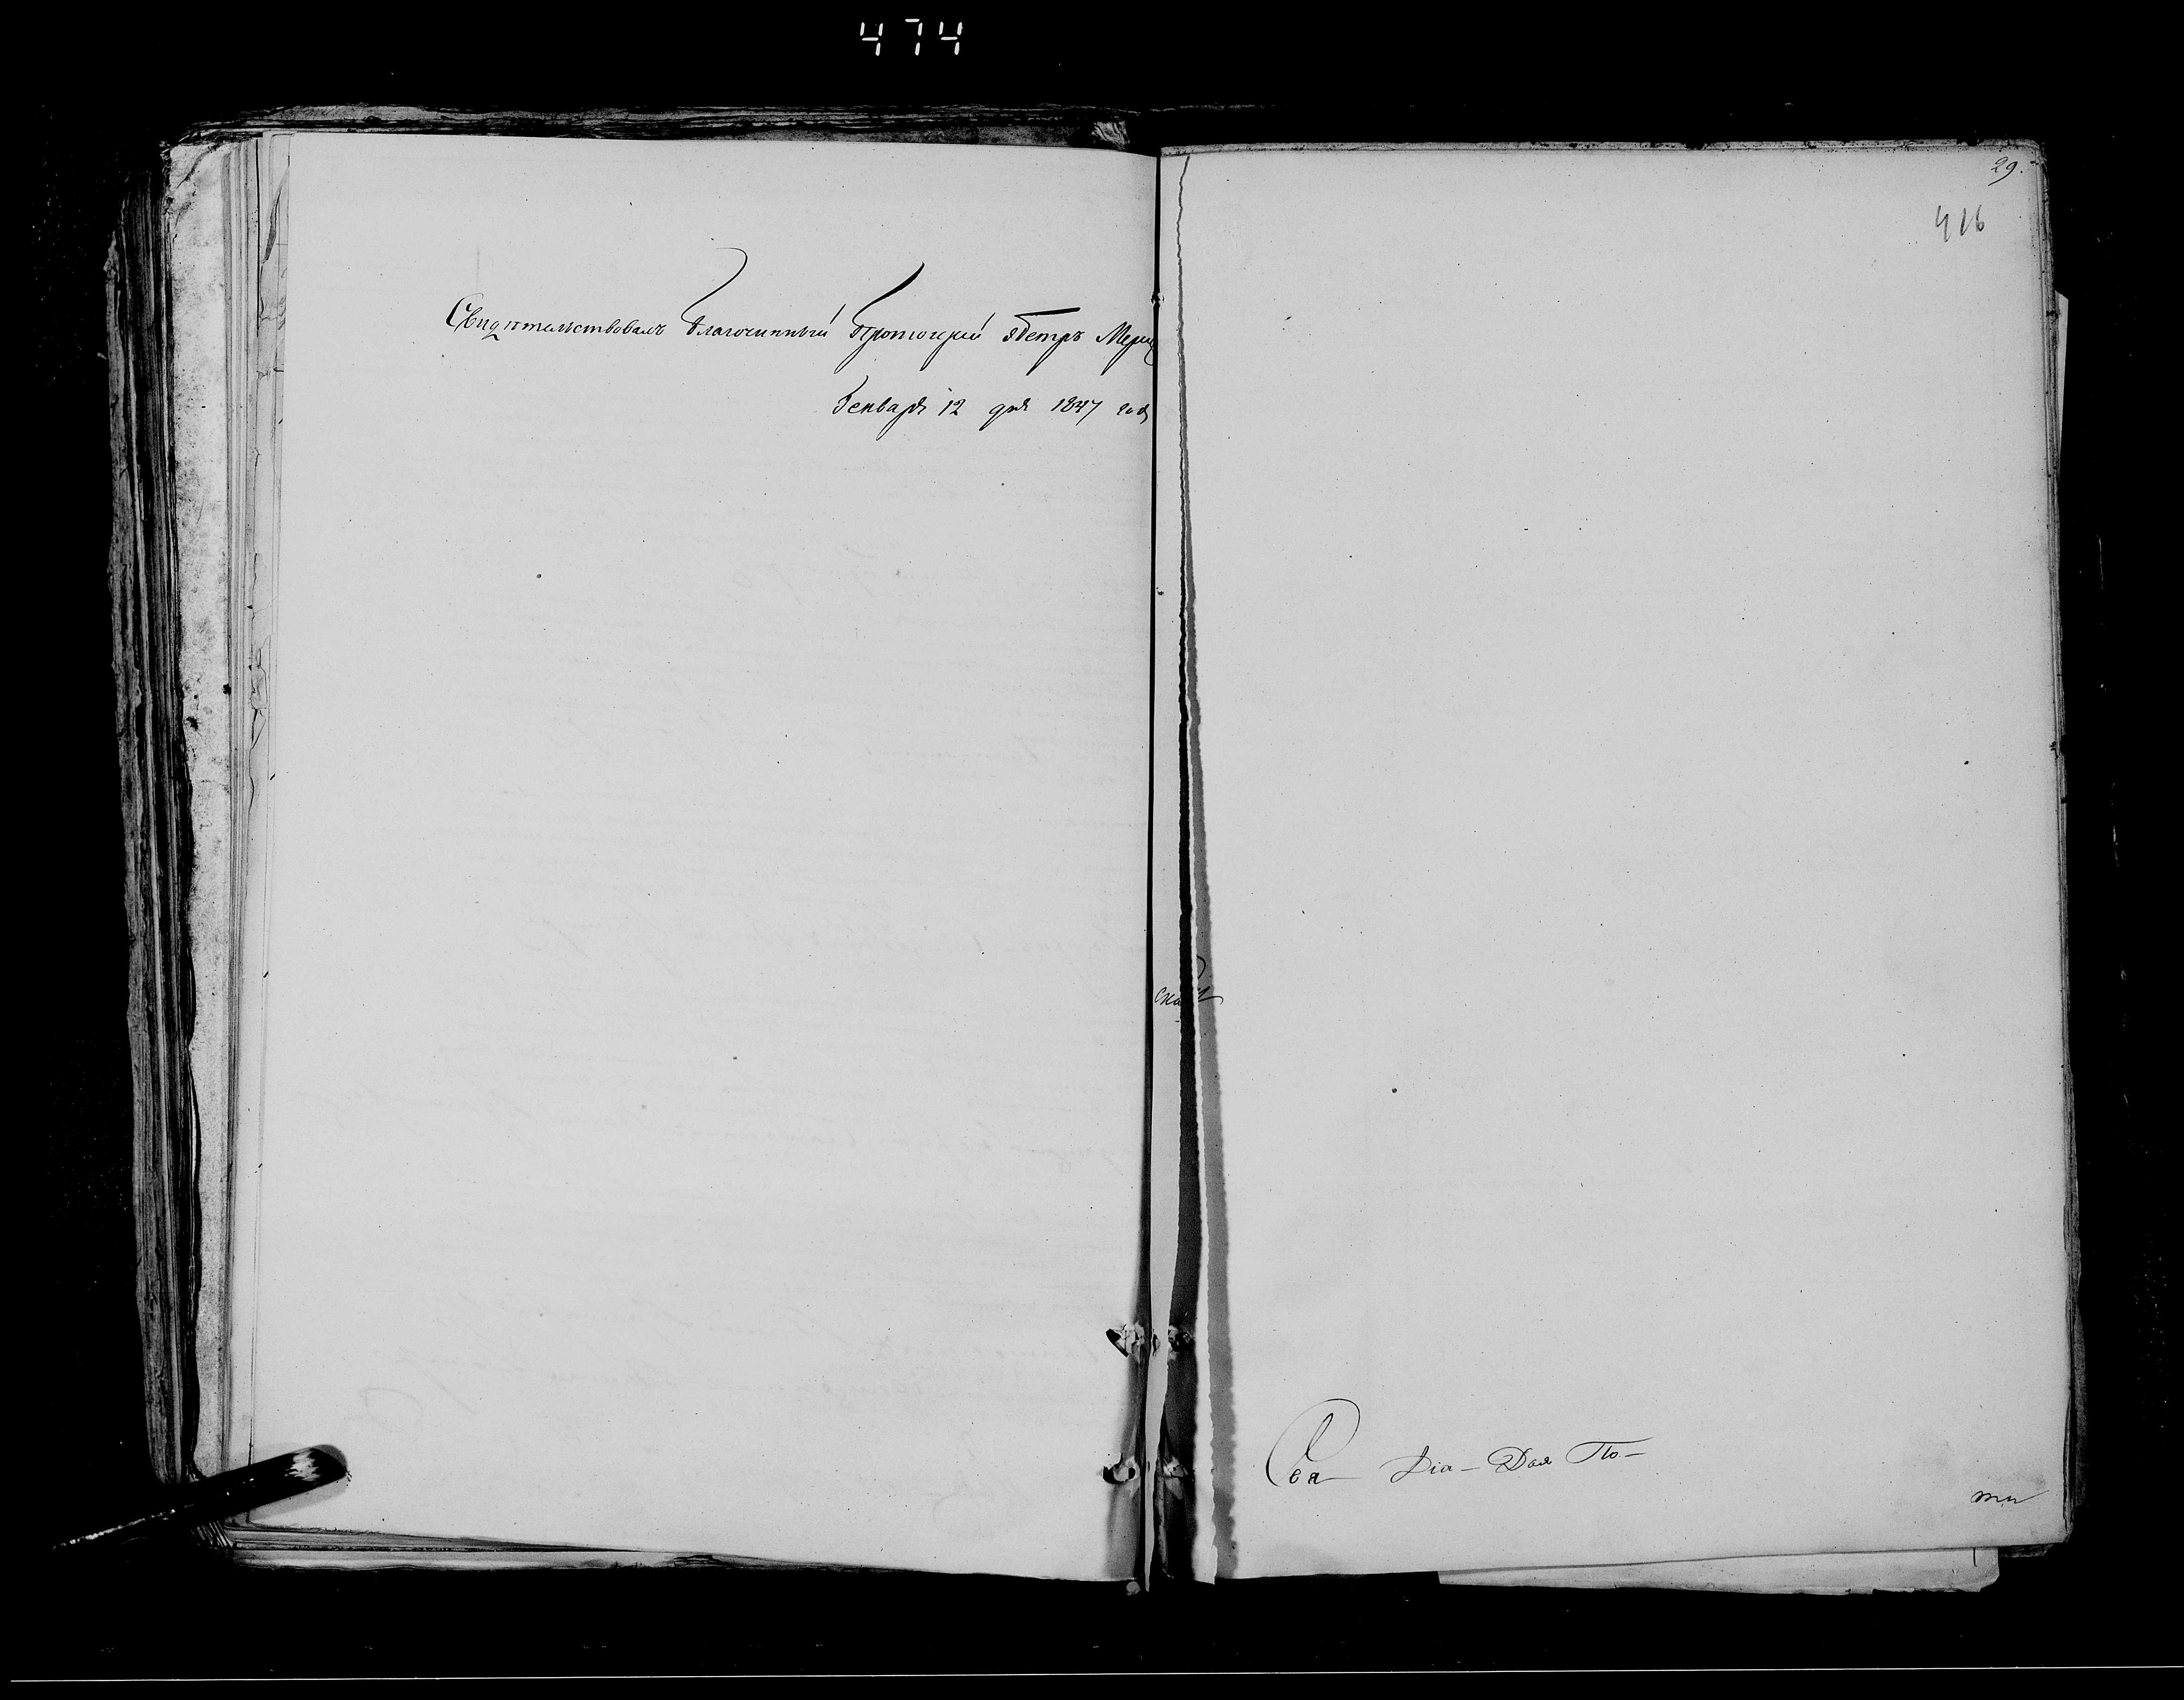 474
Свидѣтельствовалъ Благочинный Протоіерей Петръ
Генваря 12 дня 1837 года
29.
416
ска
Свя- Діа- Дая По-
ти